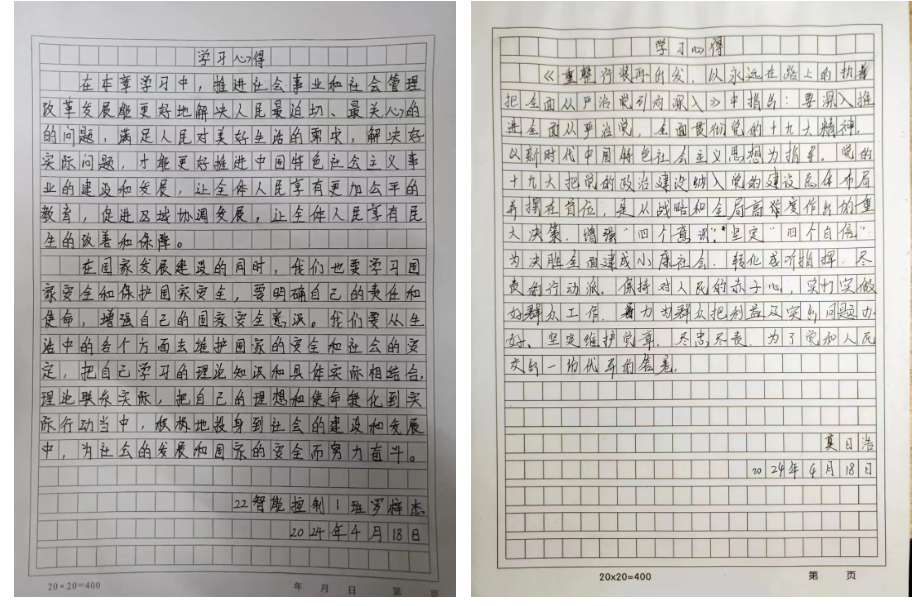 学习心得
在本章学习中，推进社会事业和社会管理
改革发展能更好地解决人民最迫切、最关心的
的问题，满足人民对美好生活的需求，解决好
实际问题，才能更好推进中国特色社会主义事
业的建设和发展，让全体人民享有更加公平的
教育，促进区域协调发展，让全体人民享有民
生的改善和保障。
在国家发展建设的同时，我们也要学习国
家安全和保护国家安全，要明确自己的责任和
使命，增强自己的国家安全意识。我们要从生
活中的各个方面去维护国家的安全和社会的安
定，把自己学习的理论知识和具体实际相结合，
理论联系实际，把自己的理想和使命转化到实
际行动当中，积极地投身到社会的建设和发展
中，为社会的发展和国家的安全而努力奋斗。
22智能控制1班罗梓杰
2024年4月18日
20×20=400
年 月 日 第 页
学习心得
《重整行装再出发，以永远在路上的执着
把全面从严治党引向深入》中指出：要深入推
进全面从严治党，全面贯彻党的十九大精神，
以新时代中国特色社会主义思想为指导。党的
十九大把党的政治建设纳入党的建设总体布局
并摆在首位，是从战略和全局高度作出的重
大决策，增强“四个意识”，坚定“四个自信”
为决胜全面建成小康社会，转化 听指挥、尽
责的行动派，保持对人民的赤子心，实打实做
好群众工作，努力为群众把利益及突出问题办
好、坚定维护党章，不忘不丧，为了党和人民
交出一份 的答卷。
莫日浩
2024年4月18日
20×20=400
第 页